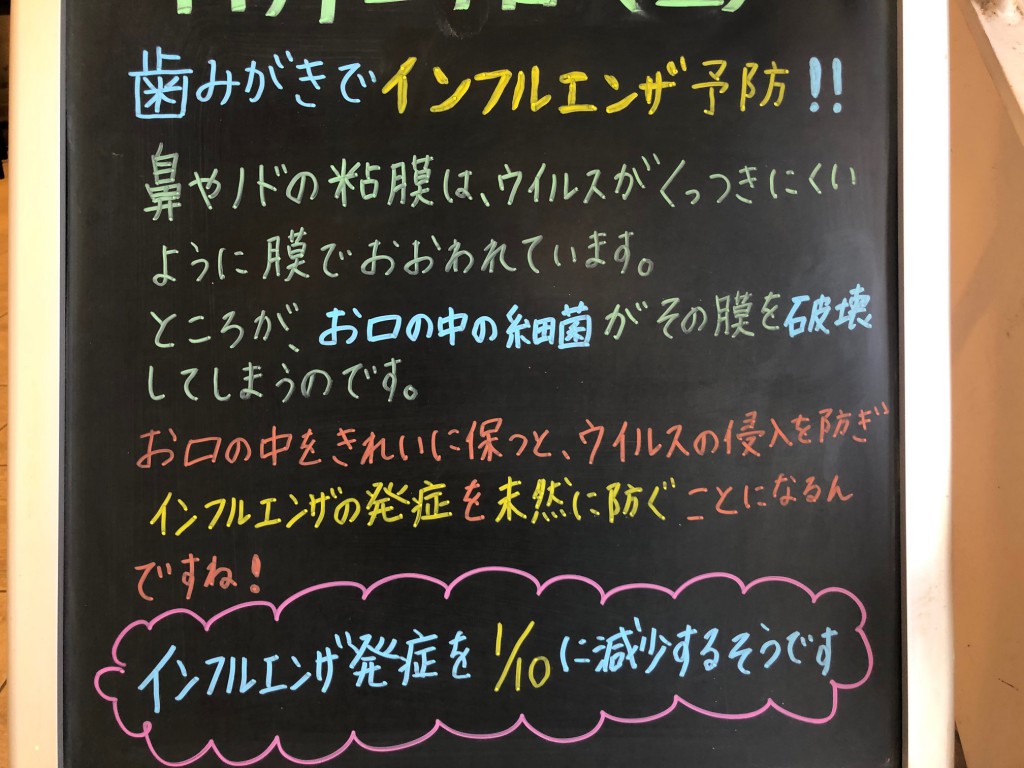 歯みがきでインフルエンザ予防!!
鼻やノドの粘膜は、ウイルスがくっつきにくい
ように膜でおおわれています。
ところが、お口の中の細菌がその膜を破壊
してしまうのです。
お口の中をきれいに保つと、ウイルスの侵入を防ぎ
インフルエンザの発症を未然に防ぐことになるん
ですね!
インフルエンザ発症を1/10に減少するそうです